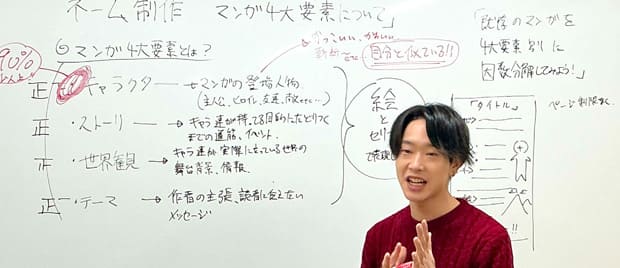 ネーム制作 マンガ4大要素について」
◎マンガ4大要素とは?
90%
正 ・キャラクター → マンガの登場人物
(主人公、ヒロイン、友達、敵などetc…)
かっこいい、かわいい
自分と似ている!!
正 ・ストーリー → キャラ達が持ってる目的にたどりつく
までの道筋、イベント。
正 ・世界観 → キャラ達が実際に立っている世界の
舞台背景、情報。
正 ・テーマ → 作者の主張、読者に伝えたい
メッセージ
絵
と
セリフ
で表現
「既存のマンガを
4大要素別に
因数分解してみよう!」
「タイトル」
ページ制限なく